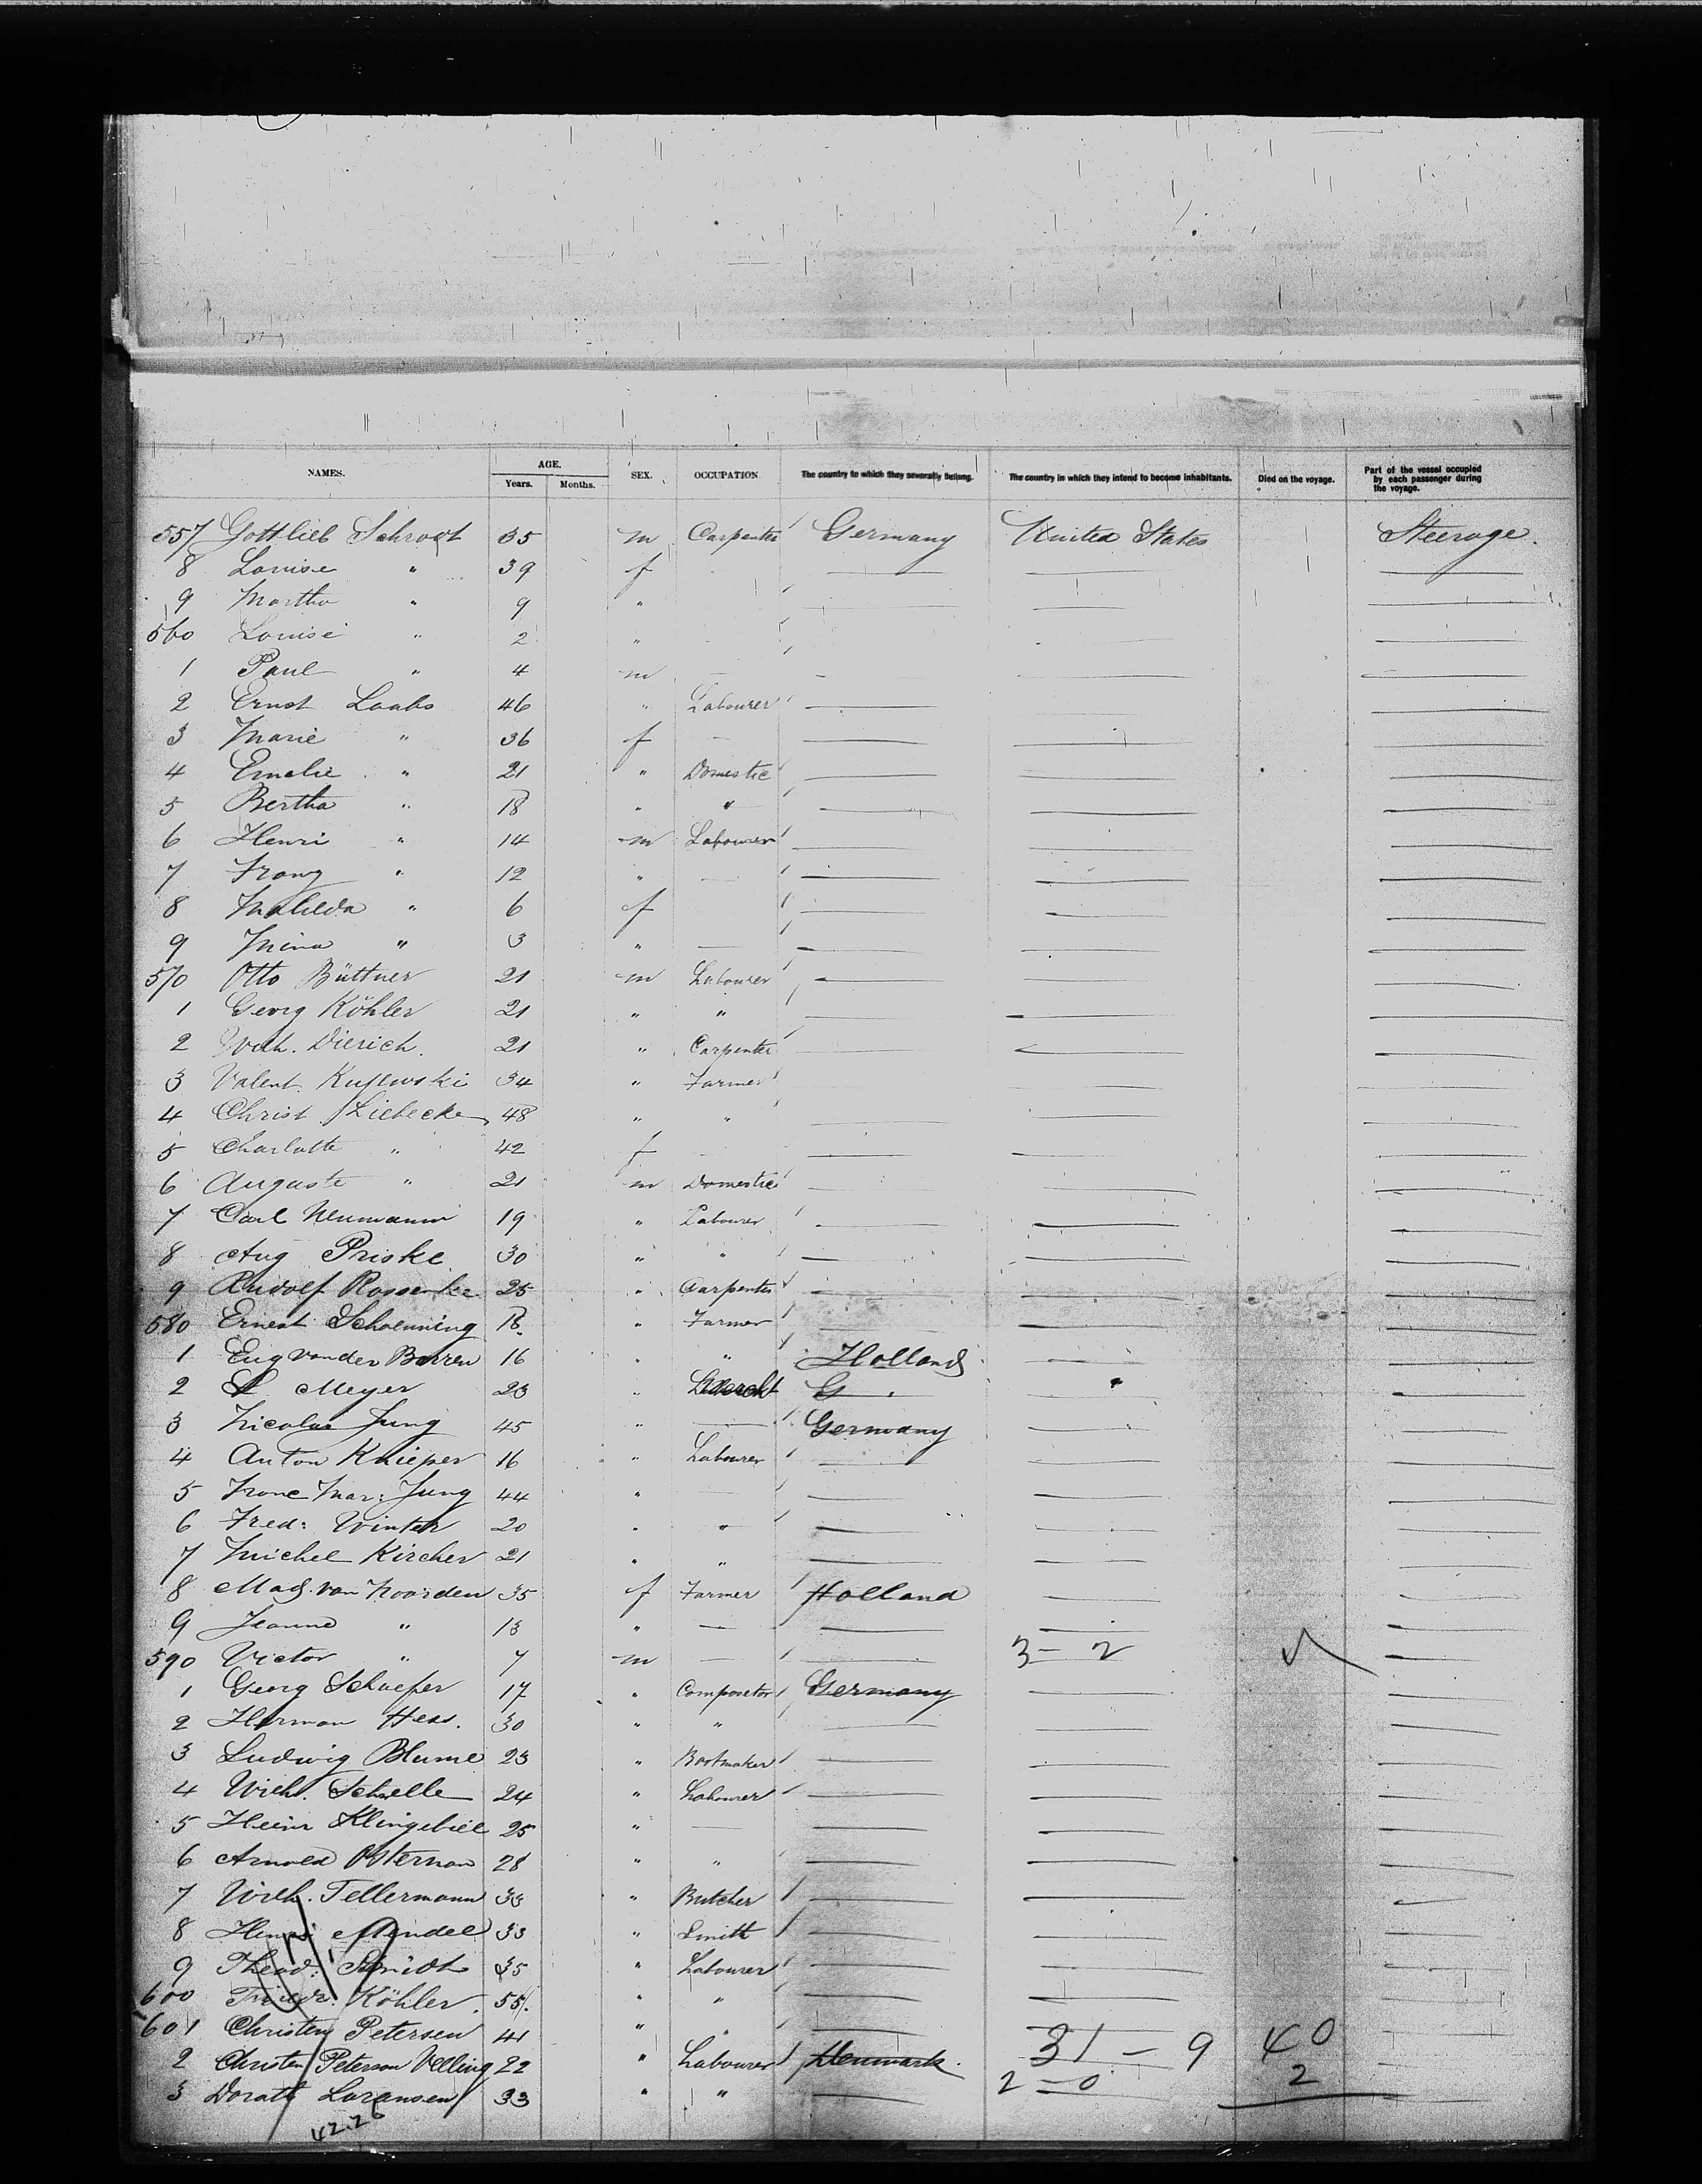 NAMES. AGE. Years. Months. SEX. OCCUPATION. The country to which they severally belong. The country in which they intend to become inhabitants. Died on the voyage. Part of the vessel occupied by each passenger during the voyage.
557 Gottlieb Schrodt 35 m Carpenter Germany United States Steerage.
8 Louise " 39 f
9 Martha " 9 "
560 Louise " 2 "
1 Paul " 4 m
2 Ernst Laabs 46 " Labourer
3 Marie " 36 f
4 Emelie " 21 " Domestic
5 Bertha " 18 " "
6 Henri " 14 m Labourer
7 Franz " 12 "
8 Matilda " 6 f
9 Mina " 3 "
570 Otto Büttner 21 m Labourer
1 Georg Köhler 21 " "
2 Dierich. 21 " Carpenter
3 Valent. Kujewski 34 " Farmer
4 Christ. Liebecke 48 " "
5 Charlotte " 42 f
6 Auguste " 21 m Domestic
7 Carl Neumann 19 " Labourer
8 Aug Priske 30 " "
9 Rudolf 25 " Carpenter
580 Ernest Schoenning 18. " Farmer
1 Eug van der 16 " " Holland
2 Meyer 23 " G
3 Nicolas Jung 45 " Germany
4 Anton Knieper 16 " Labourer
5 Jung 44 "
6 Fred: Winter 20 " "
7 Michel Kircher 21 " "
8 Mad. van Noorden 35 f Farmer Holland
9 Jeanne " 13 "
590 Victor " 7 m 3 - 2
1 Georg Schaefer 17 " Compositor Germany
2 Herman Hess. 30 " "
3 Ludwig Blume 23 " Bootmaker
4 Wilh. Schelle 24 " Labourer
5 Heinr Klingebiel 25 "
6 Arnold Osterman 28 " "
7 Wilh. Tellermann 33 " Butcher
8 Mendel 33 " Smith
9 Theod: Schmidt 35 " Labourer
600 Friedr. Köhler. 55. " "
601 Christen Petersen 41 " " 31 - 9 40
2 Christen Peterson Velling 22 " Labourer Denmark. 2 - 0 2
3 Dorath Laransen 33 " "
42.26